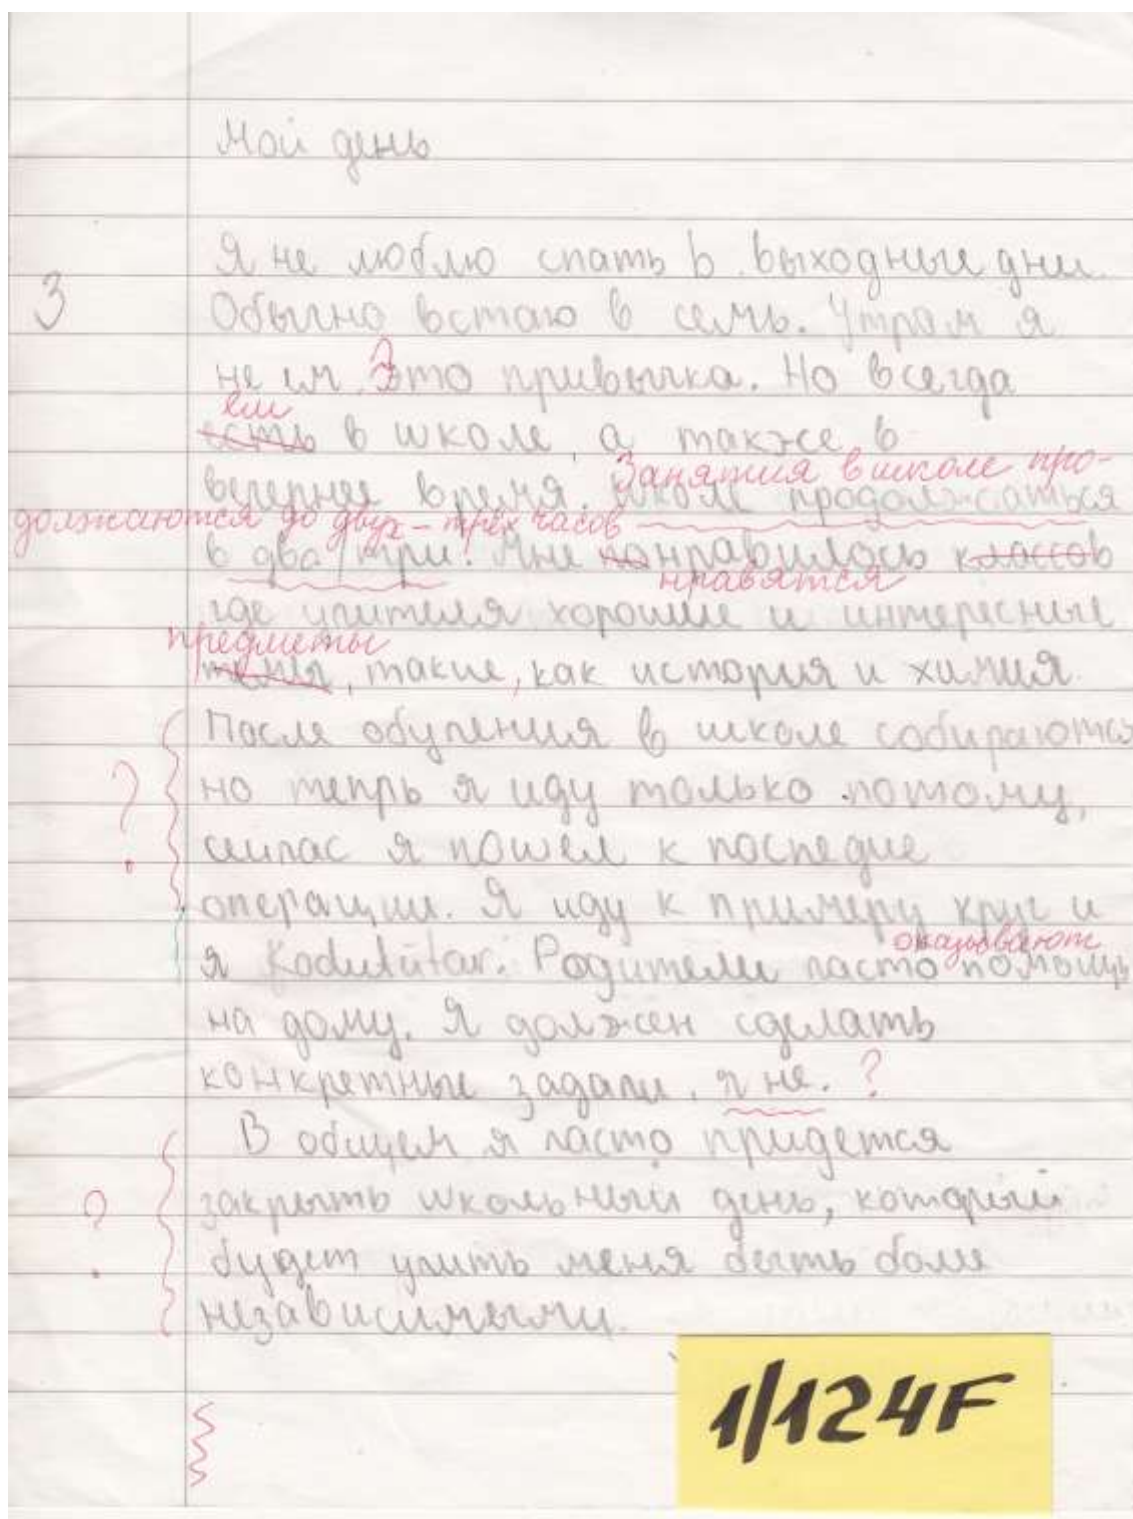 Мой день
Я не люблю спать в выходные дни.
3
Обычно встаю в семь. Утрам я
не ем. Это привычка. Но всегда
ем
есть в школе, а также в
Занятия в школе про-
вечернее время. школе продолжаться
должаются до двух-трёх часов
в два/три. Мне понравилось классов
нравятся
где учителя хорошие и интересные
предметы
темя, такие, как история и химия.
После обучения в школе собираются
но тепрь я иду только потому,
?
сичас я пошел к последие
операции. Я иду к примеру круг и
оказывают
я Kodutütar. Родители часто помощь
на дому. Я должен сделать
конкретные задачи, я не. ?
В общем я часто придется
закрыть школьный день, который
?
будет учить меня быть боли
независимыми.
1/124F